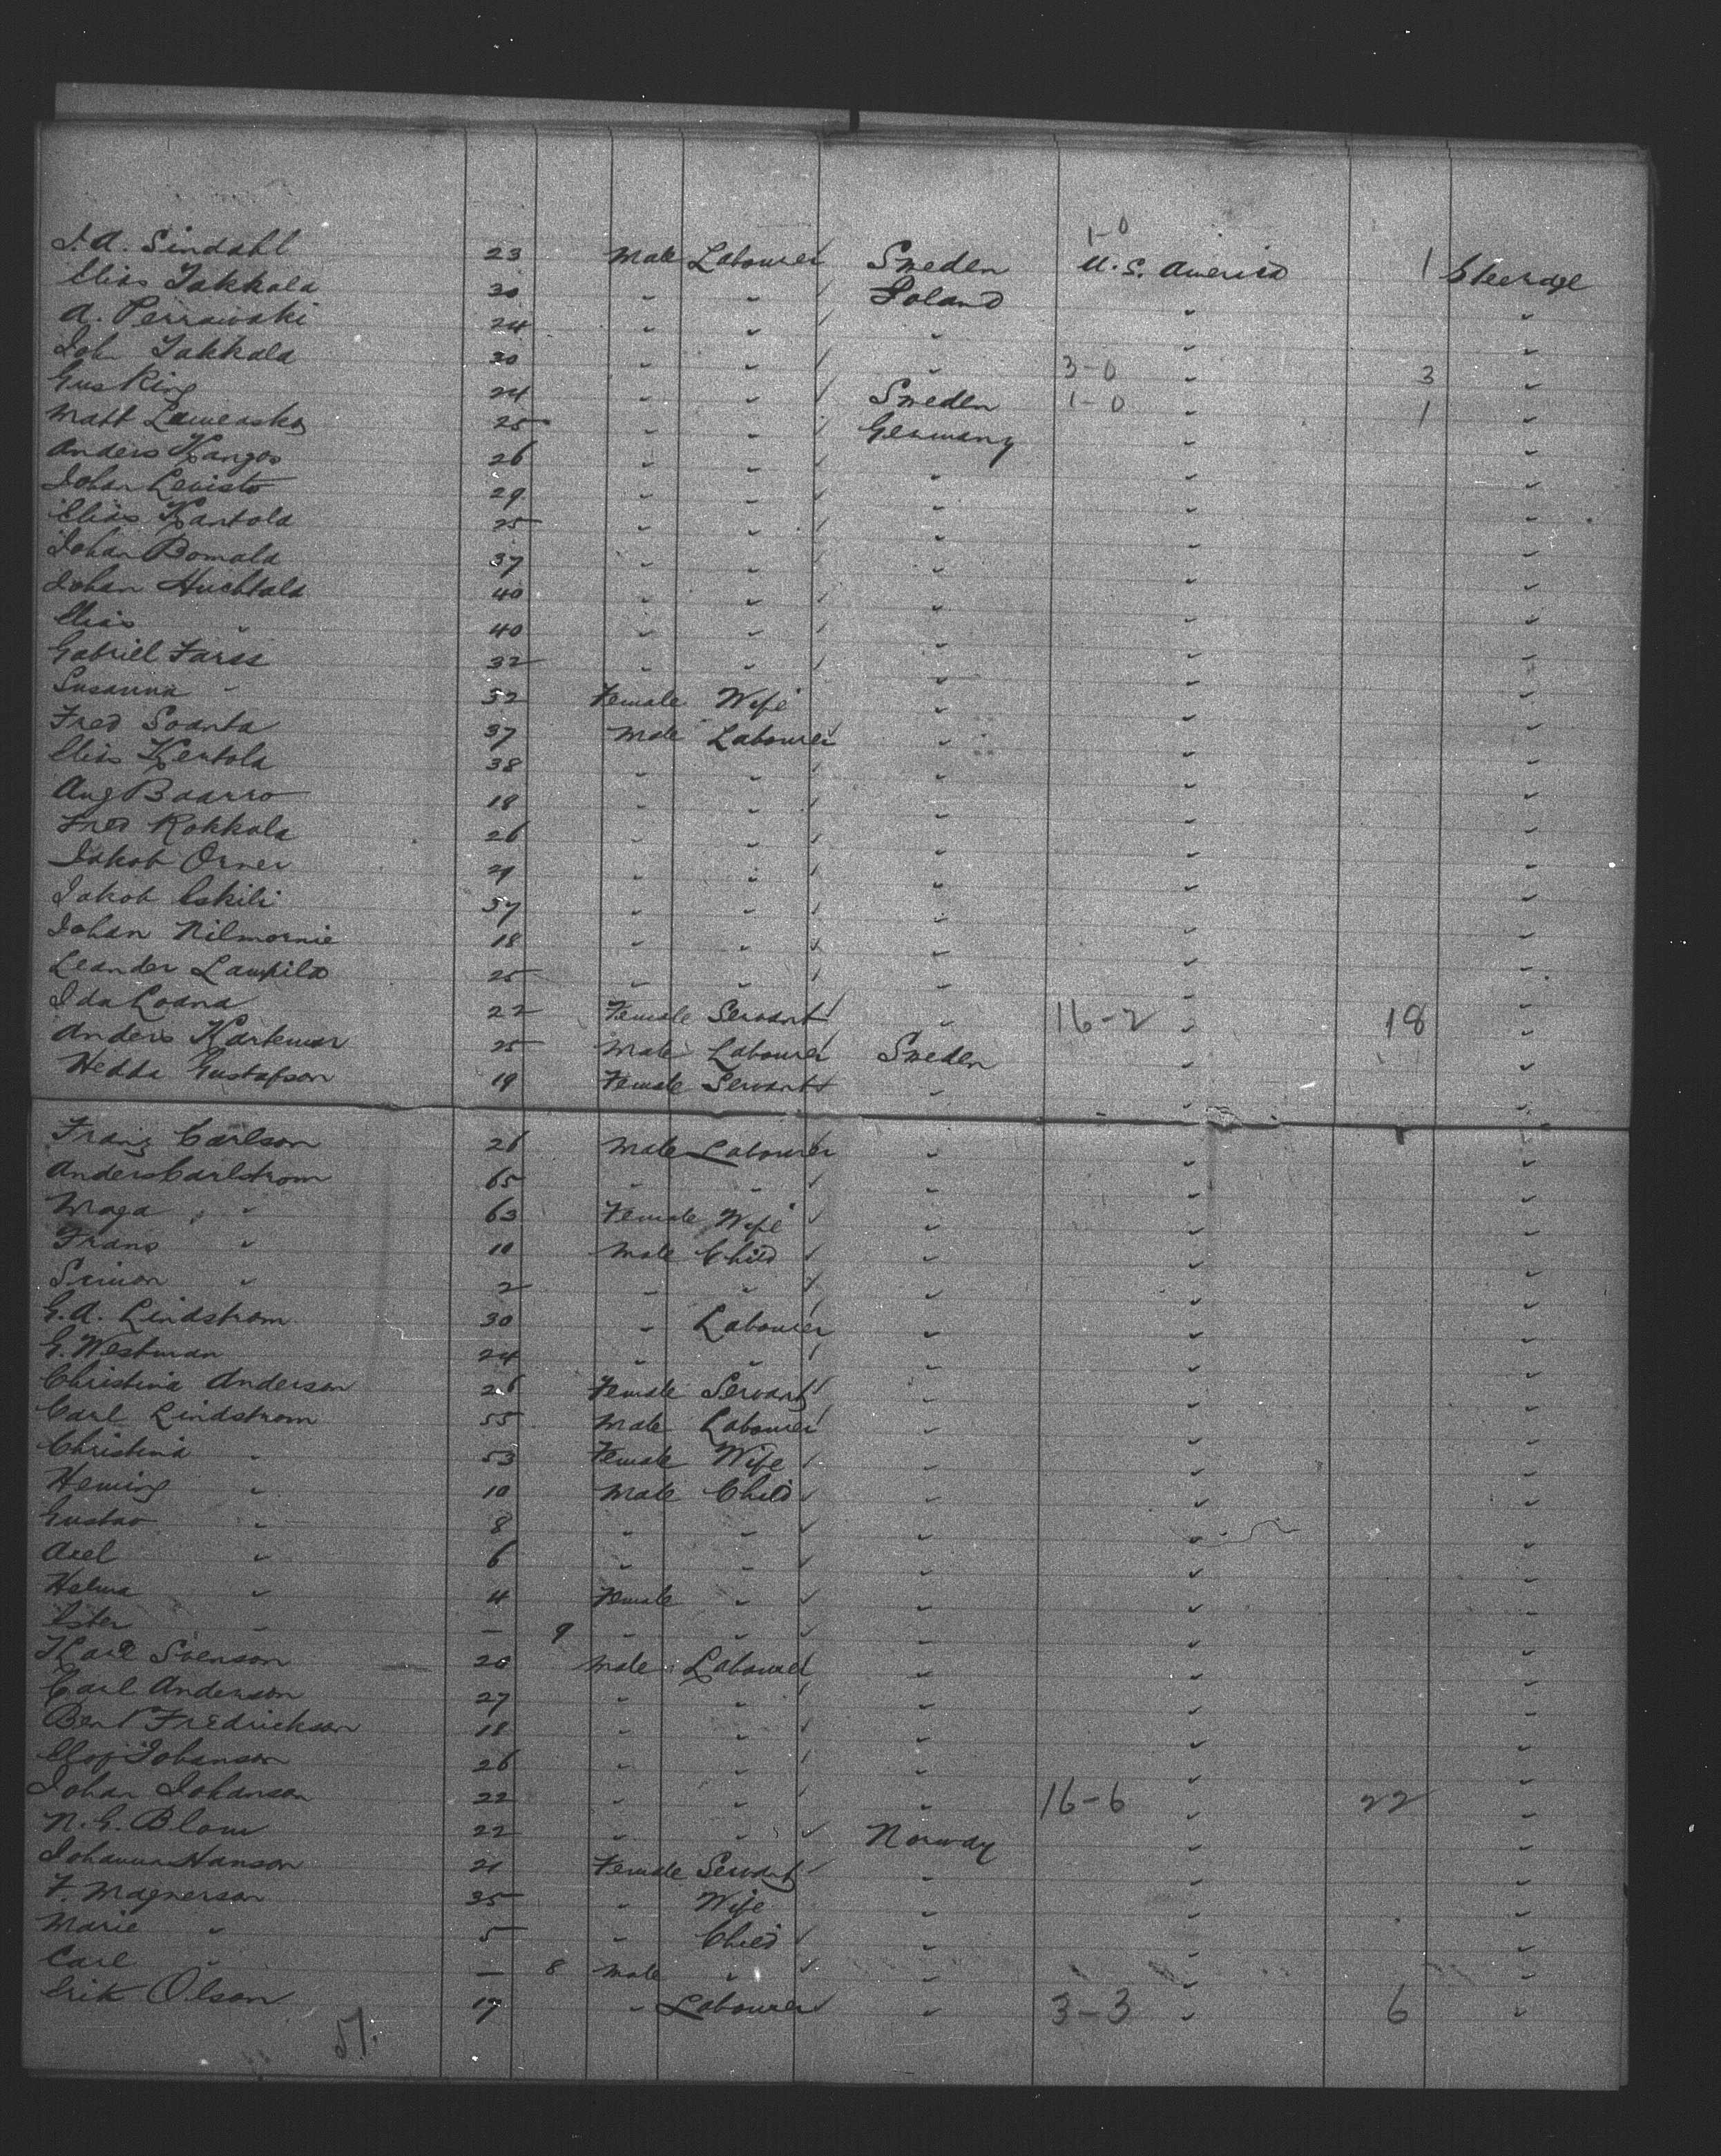 1-0
J. A. Sindahl 23 Male Labourer Sweden U.S. America 1 Steerage
Elias Takkala 30 " " Poland " "
A. Perrawaki 24 " " " " "
Joh Takkala 30 " " " 3-0 " 3 "
Gus Ring 24 " " Sweden 1-0 " 1 "
Matt 25 " " Germany " "
Anders Kangas 26 " " " " "
Johan Levisto 29 " " " " "
Elias Kantola 25 " " " " "
Johan Bomala 37 " " " " "
Johan Huchtala 40 " " " " "
Elias " 40 " " " " "
Gabriel Farss 32 " " " " "
Susanna " 32 Female Wife " " "
Fred Soanta 37 Male Labourer " " "
Elias Kertola 38 " " " " "
Aug Baarro 18 " " " " "
Fred Kokkola 26 " " " " "
Jakob Orner 21 " " " " "
Jakob Eskili 37 " " " " "
Johan Nilmornie 18 " " " " "
Leander Laupila 25 " " " " "
Ida Loana 22 Female Servant " 16-2 " 18 "
Anders 25 Male Labourer Sweden " "
Hedda Gustafson 19 Female Servant " " "
Franz Carlson 26 Male Labourer " " "
Anders Carlstrom 65 " " " " "
Maga " 63 Female Wife " " "
Frans " 10 Male Child " " "
Simon " 2 " " " " "
G. A. Lindstrom 30 " Labourer " " "
G. Westman 24 " " " " "
Christina Anderson 26 Female Servant " " "
Carl Lindstrom 55 Male Labourer " " "
Christina " 53 Female Wife " " "
Heming " 10 Male Child " " "
Gustav " 8 " " " " "
Axel " 6 " " " " "
Halma " 4 Female " " " "
Ester " — 9 " " " " "
Karl Svenson 20 Male Labourer " " "
Carl Anderson 27 " " " " "
Bent Fredrickson 18 " " " " "
Olof Johanson 26 " " " " "
Johan Johanson 22 " " " 16-6 " 22 "
N. G. Blom 22 " " Norway " "
Johanna Hanson 21 Female Servant " " "
F. Magnerson 35 " Wife " " "
Marie " 5 " Child " " "
Carl " — 8 Male " " " "
Erik Olson 19 " Labourer " 3-3 " 6 "
51.